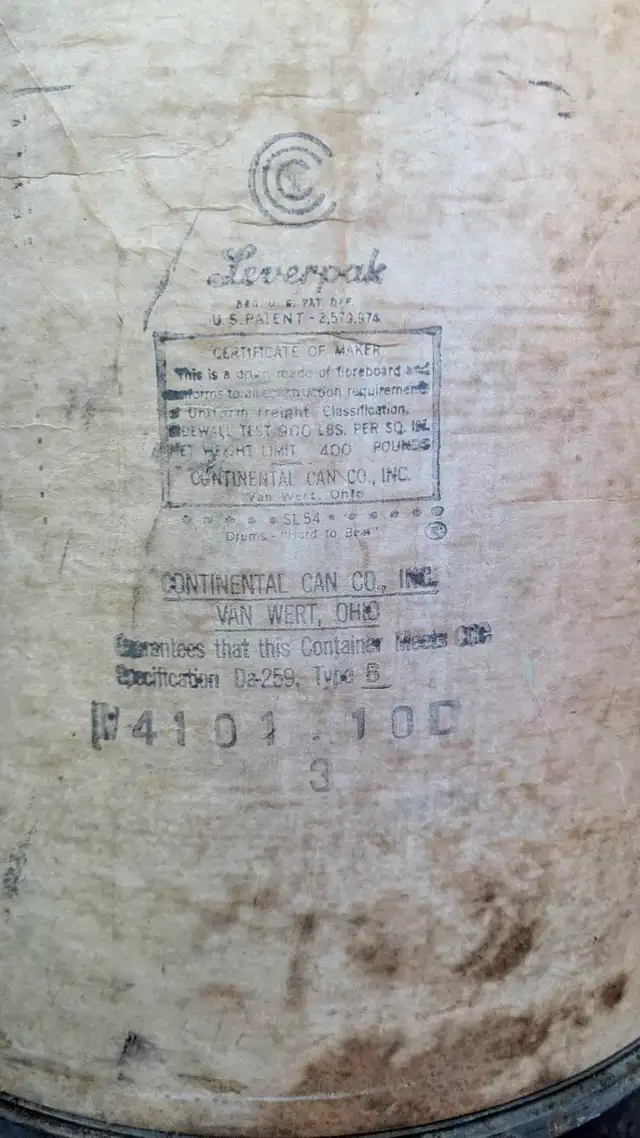 Leverpak
REG. U. S. PAT. OFF.
U.S. PATENT - 2,579,974
CERTIFICATE OF MAKER
This is a drum made of fibreboard and
to all construction requirements
Uniform Freight Classification.
SIDEWALL TEST 900 LBS. PER SQ. IN.
NET WEIGHT LIMIT 400 POUNDS
CONTINENTAL CAN CO., INC.
Van Wert, Ohio
SL54
Drums - "Hard to Beat"
CONTINENTAL CAN CO., INC.
VAN WERT, OHIO
Guarantees that this Container Meets
Specification Da-259, Type B
4101.10
3